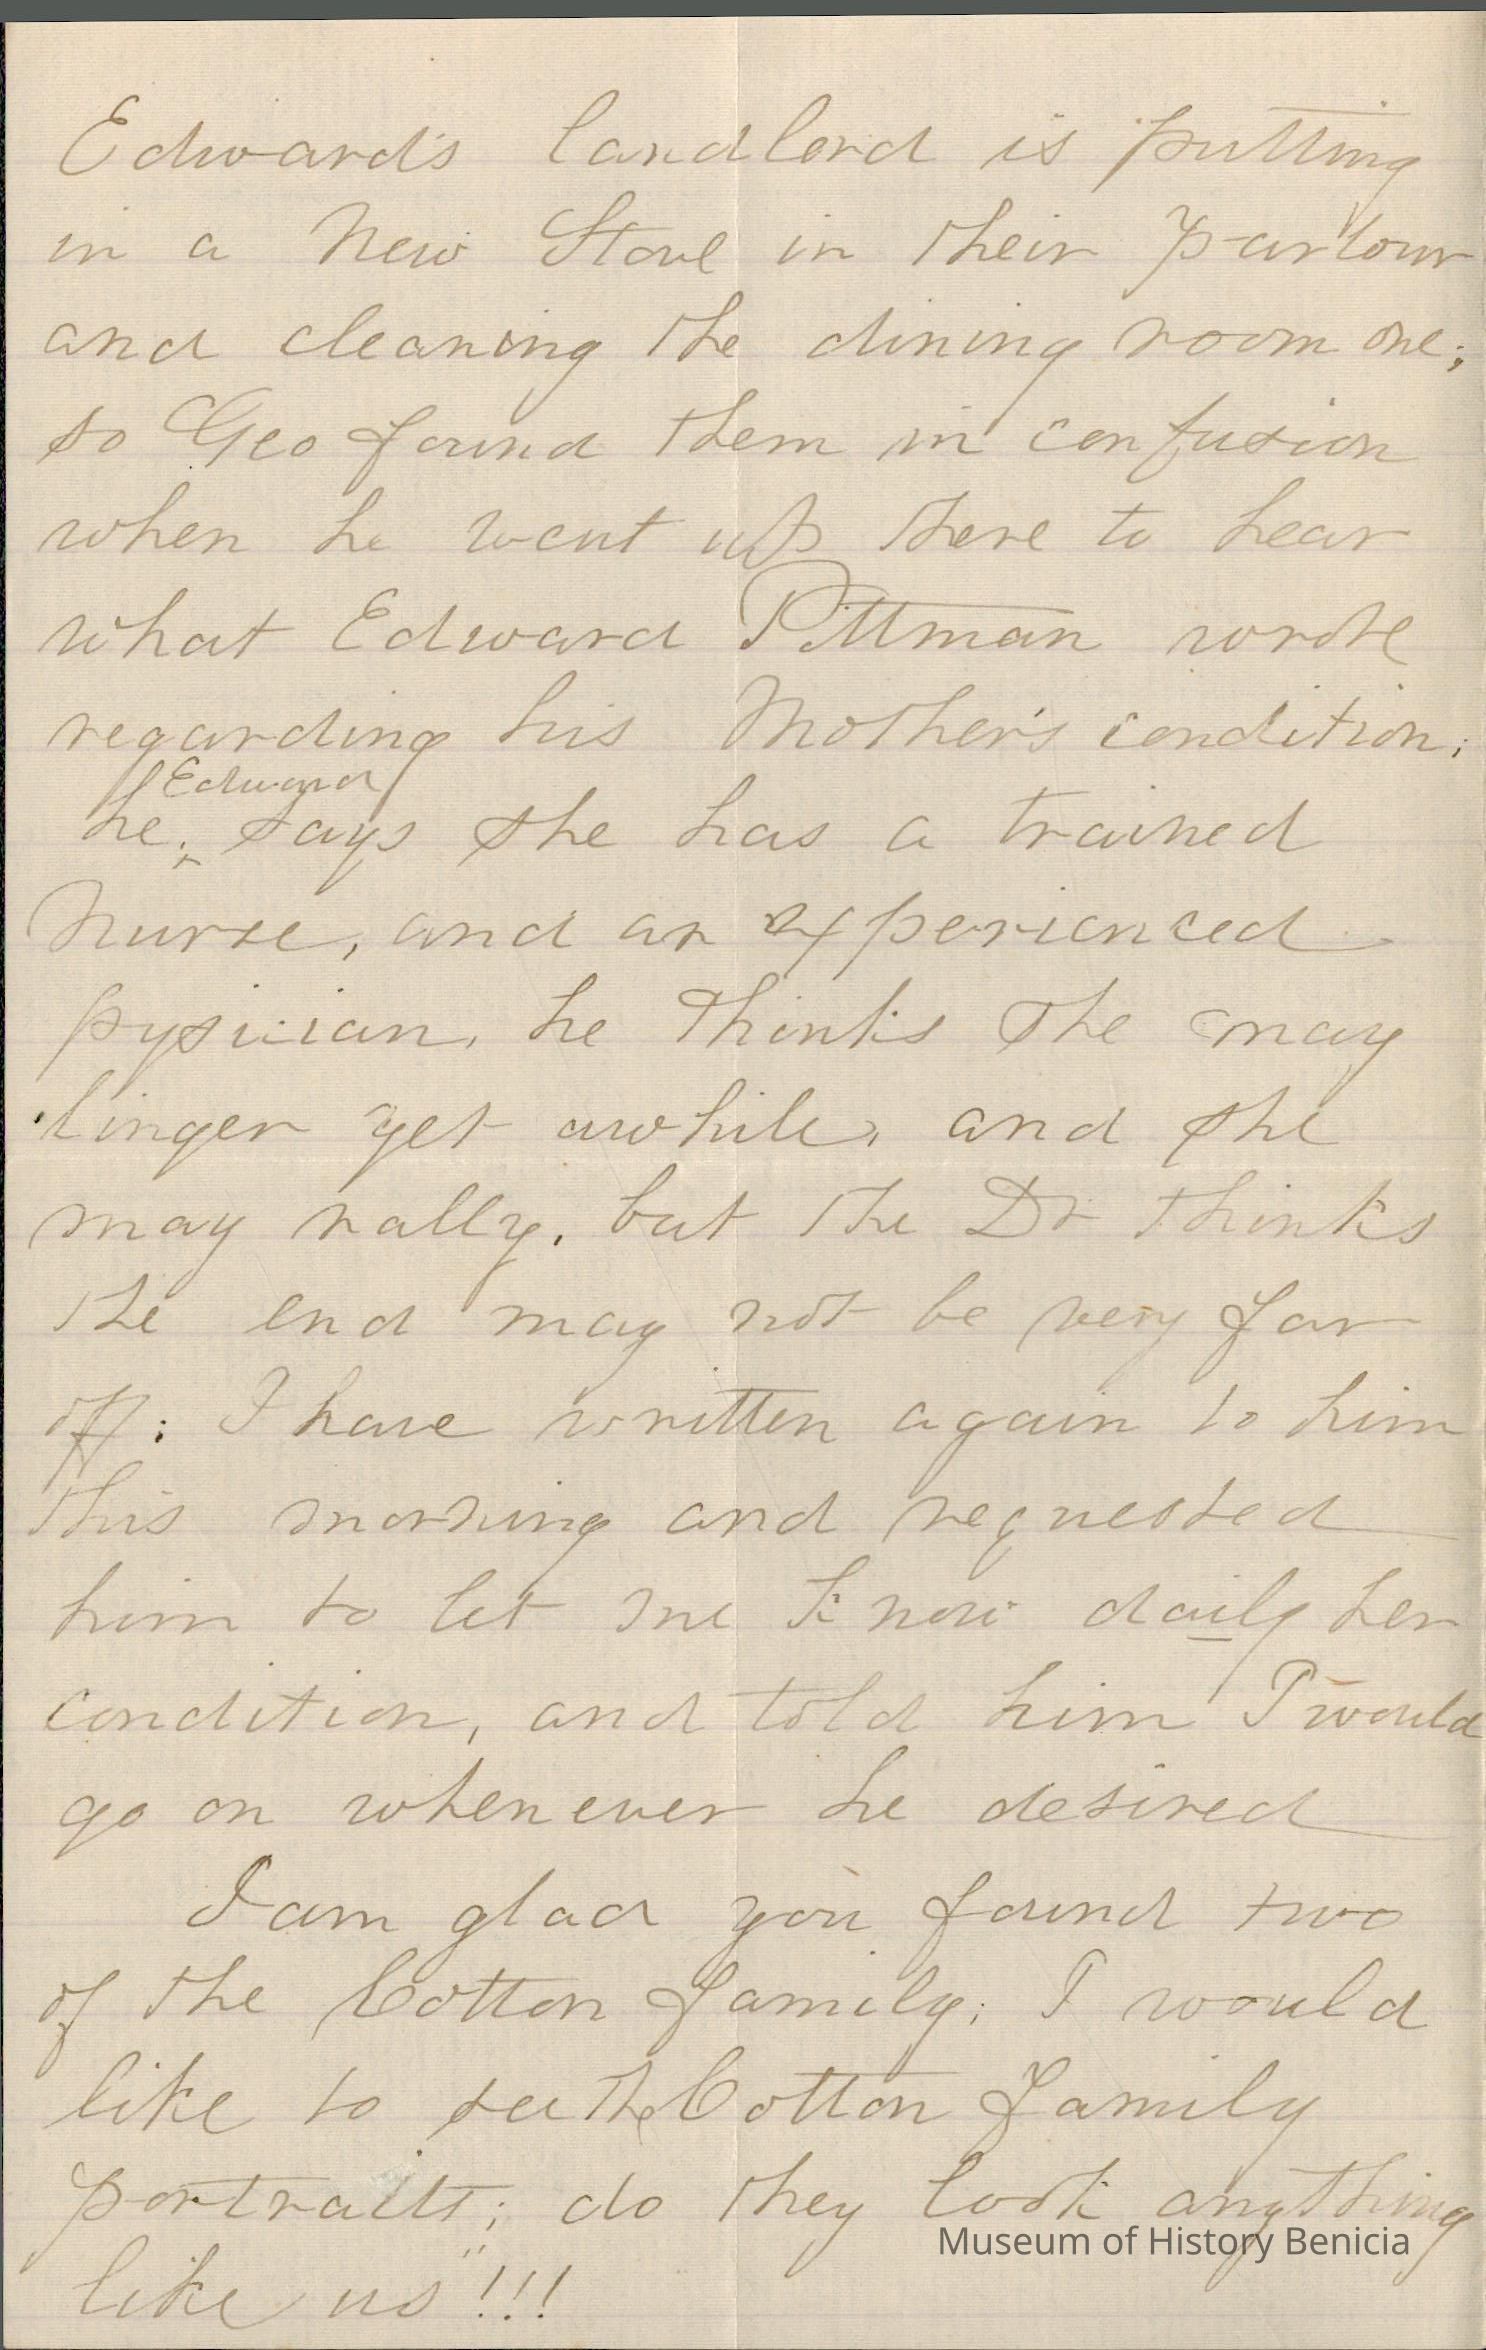 Edward's landlord is putting
in a New Stove in their parlour
and cleaning the dining room one;
so Geo found them in confusion
when he went up there to hear
what Edward Pittman wrote
regarding his Mother's condition;
(Edward)
he, says she has a trained
Nurse, and an experienced
pysician, he thinks she may
linger yet awhile, and she
may rally, but the Dr thinks
the end may not be very far
off: I have written again to him
this morning and requested
him to let me know daily her
condition, and told him I would
go on whenever he desired
I am glad you found two
of the Cotton family; I would
like to see the Cotton family
portraits; do they look anything
like us"!!!
Museum of History Benicia